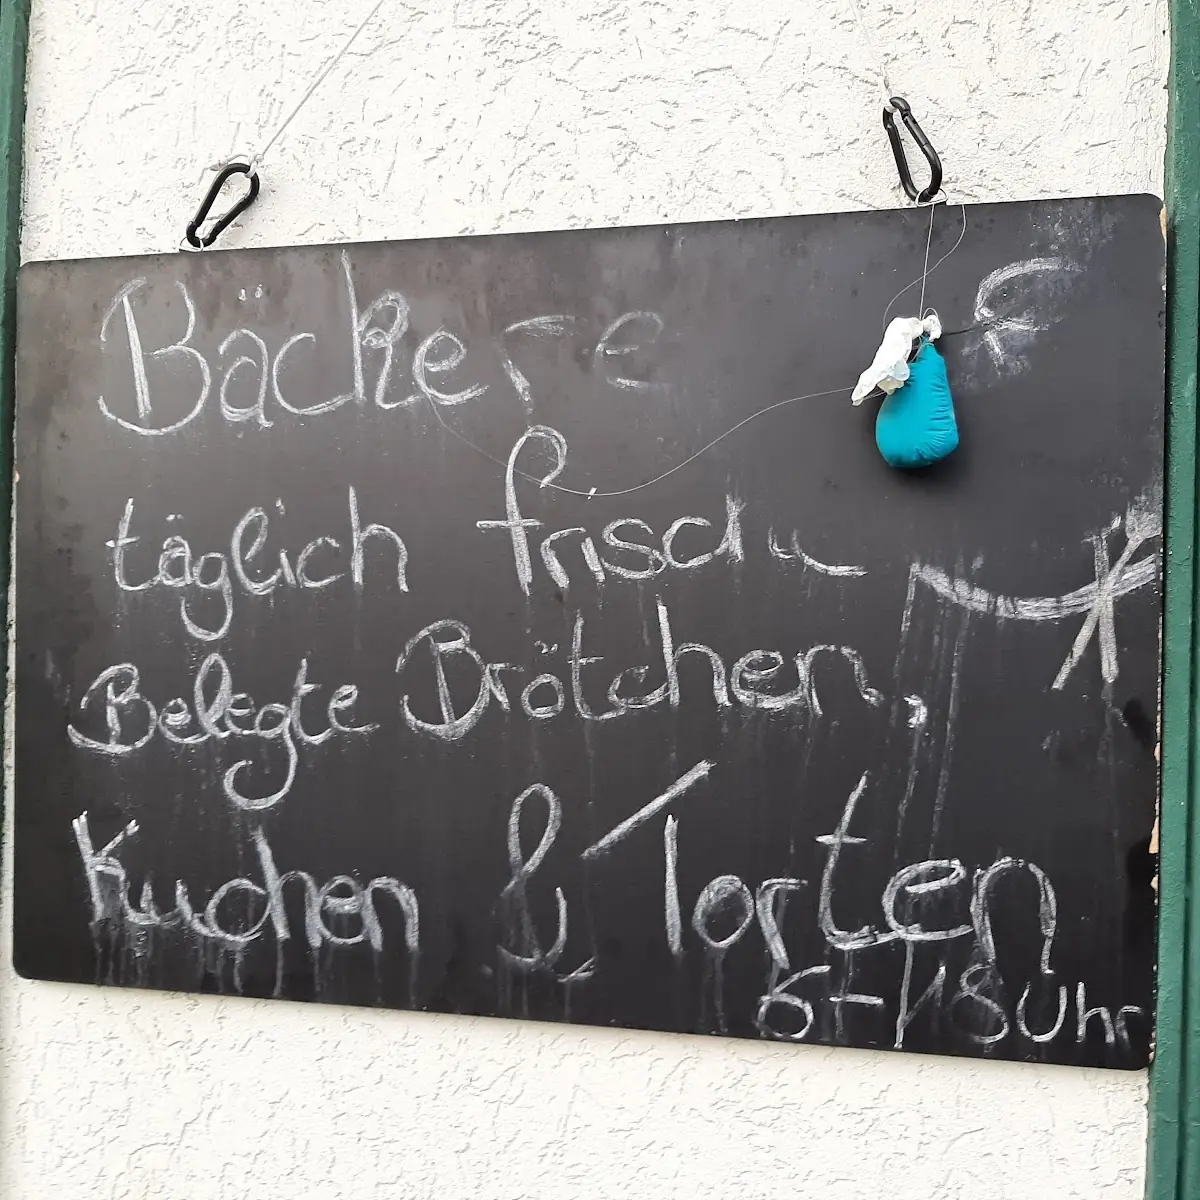 Bäckere
täglich frisch
Belegte Brötchen,
Kuchen & Torten
6-18 Uhr